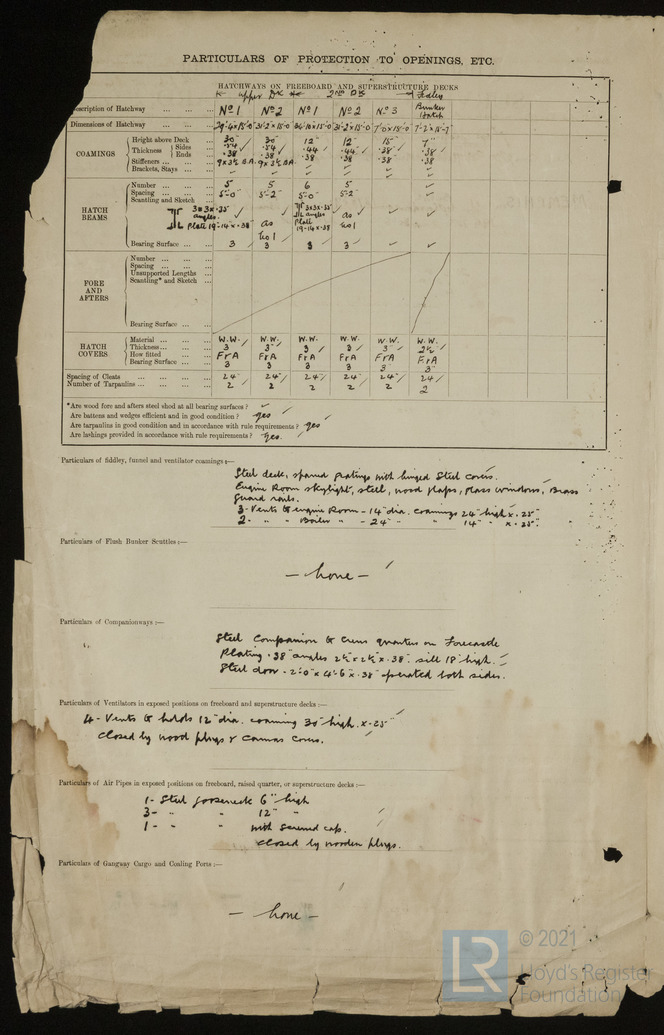 PARTICULARS OF PROTECTION TO OPENINGS, ETC.
HATCHWAYS ON FREEBOARD AND SUPERSTRUCTURE DECKS
upper Dk 2nd Dk Fidley
Description of Hatchway No 1 No 2 No 1 No 2 No 3 Bunker Hatch
Dimensions of Hatchway 29'-4"x15'-0" 31'-2"x15'-0" 36'-10"x15'-0 31'-2"x15'-0 7'-0"x15'-0 7'-2"x15'-7"
COAMINGS
Height above Deck 30" 30" 12" 12" 15" 7"
Thickness Sides .54 .54 .44 .44 .38 .38
Ends .38 .38 .38 .38 .38 .38
Stiffeners 9x3½ B.A. 9x3½ B.A.
Brackets, Stays
HATCH BEAMS
Number 5 5 6 5
Spacing 5'-0" 5'-2" 5'-0" 5'-2"
Scantling and Sketch
3x3x.35 angles. as 3x3x.35 angles as
Plate 19-14x.38 No 1 Plate 19-14x.38 No 1
Bearing Surface 3 3 3 3
FORE AND AFTERS
Number
Spacing
Unsupported Lengths
Scantling* and Sketch
Bearing Surface
HATCH COVERS
Material W.W. W.W. W.W. W.W. W.W. W.W.
Thickness 3" 3" 3 3 3" 2½
How fitted F&A F&A F&A F&A F&A F&A
Bearing Surface 3 3 3 3 3" 3"
Spacing of Cleats 24" 24" 24" 24" 24" 24"
Number of Tarpaulins 2 2 2 2 2 2
*Are wood fore and afters steel shod at all bearing surfaces?
Are battens and wedges efficient and in good condition? yes
Are tarpaulins in good condition and in accordance with rule requirements? yes
Are lashings provided in accordance with rule requirements? yes.
Particulars of fiddley, funnel and ventilator coamings:—
Steel deck, spared gratings with hinged Steel covers.
Engine Room skylight, steel, wood flaps, glass windows, Brass
guard rails.
3- Vents to engine Room - 14" dia. coamings 24" high x .25"
2- " " Boiler " - 24" " 14" " x .25".
Particulars of Flush Bunker Scuttles:—
— none —
Particulars of Companionways:—
Steel Companion to Crews quarters on Forecastle
Plating .38" angles 2½ x 2½ x .38". sill 18" high.
Steel door - 2'-0" x 4'-6" x .38" operated both sides.
Particulars of Ventilators in exposed positions on freeboard and superstructure decks:—
4- Vents to holds 12" dia. coaming 30" high x .25"
closed by wood plugs & canvas covers.
Particulars of Air Pipes in exposed positions on freeboard, raised quarter, or superstructure decks:—
1- Steel gooseneck 6" high
3- " " 12" "
1- " " with screwed cap.
closed by wooden plugs.
Particulars of Gangway Cargo and Coaling Ports:—
— none —
LR
© 2021
Lloyd's Register
Foundation